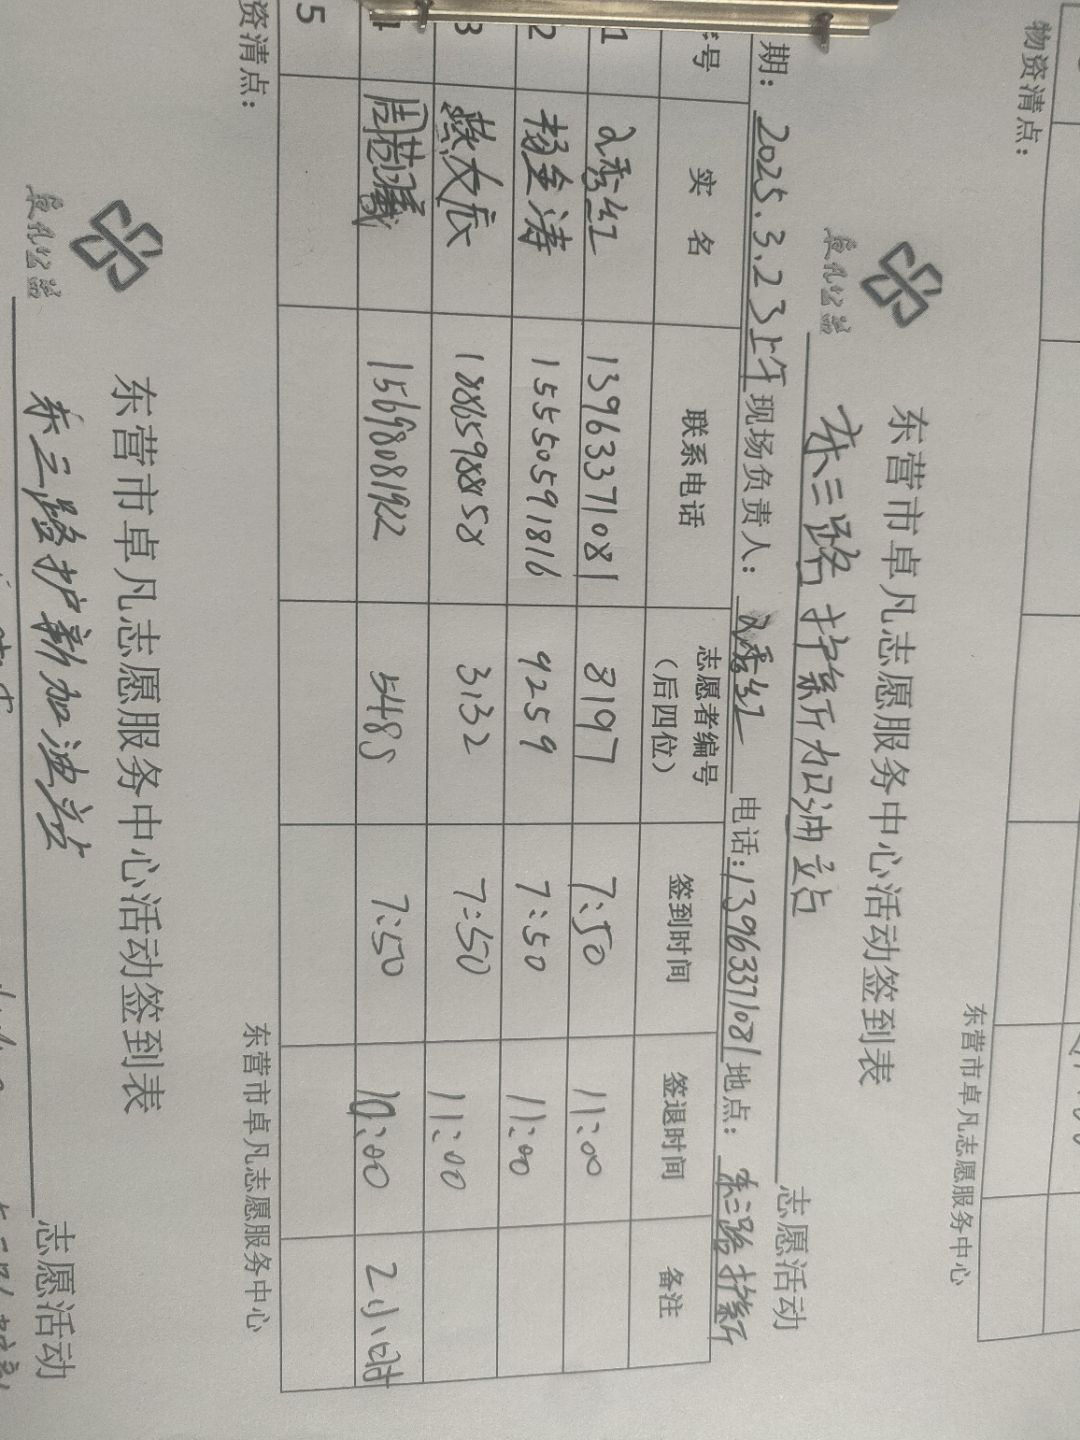 物资清点：
东营市卓凡志愿服务中心
卓凡公益
东营市卓凡志愿服务中心活动签到表
东三路护新加油站 志愿活动
期：2025.3.23上午 现场负责人：秀红 电话：13963371081 地点：东三路护新
号 实 名 联系电话 志愿者编号（后四位） 签到时间 签退时间 备注
1 秀红 13963371081 8197 7:50 11:00
2 杨金涛 15550591816 9259 7:50 11:00
3 燕大辰 18865988858 3132 7:50 11:00
4 周 15698081922 5485 7:50 10:00 2小时
5
资清点：
东营市卓凡志愿服务中心
卓凡公益
东营市卓凡志愿服务中心活动签到表
东三路护新加油站 志愿活动